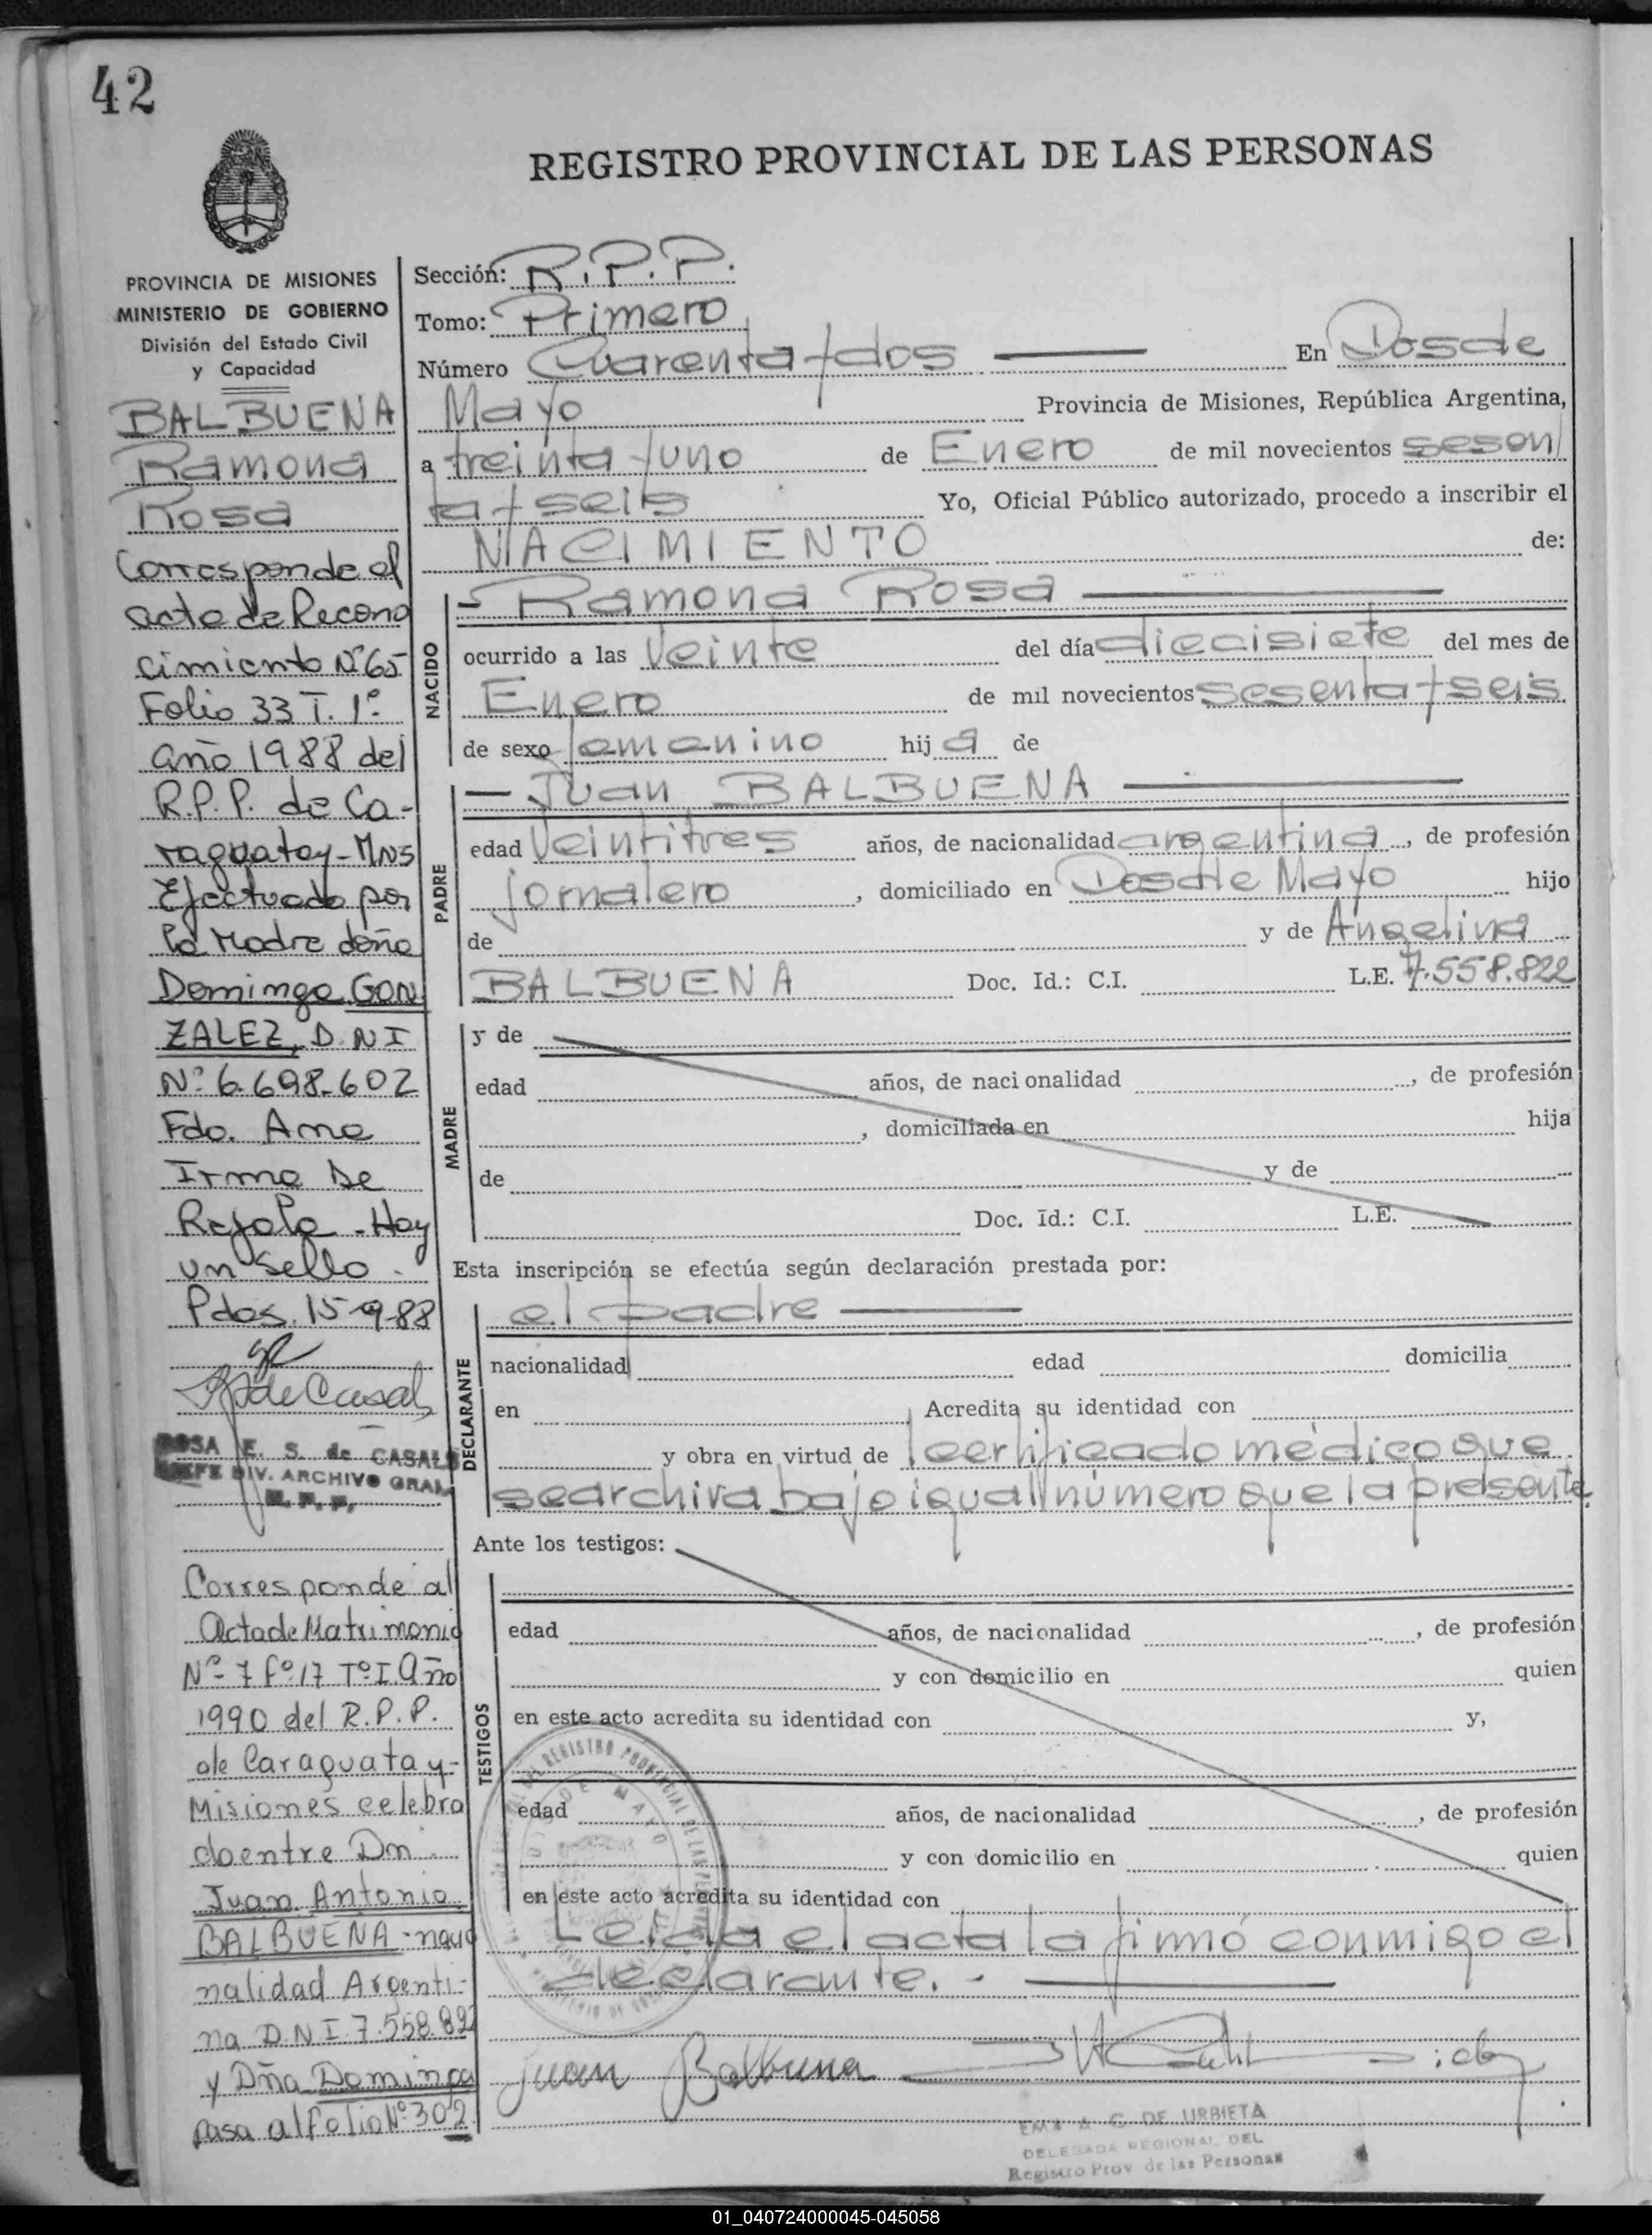 42
REGISTRO PROVINCIAL DE LAS PERSONAS
PROVINCIA DE MISIONES
MINISTERIO DE GOBIERNO
División del Estado Civil
y Capacidad
BALBUENA
Ramona
Rosa
Corresponde al
acta de Recono
cimiento Nº 65
Folio 33 T. 1º
año 1988 del
R.P.P. de Ca-
raguatay - MNS
Efectuado por
la Madre doña
Dominga GON
ZALEZ, D.N.I
Nº 6.698.602
Fdo. Ana
Irma De
Hay
un Sello.
Pdas. 15-9-88
ROSA E. S. de CASALS
JEFE DIV. ARCHIVO GRAL.
R. P. P.
Corresponde al
Acta de Matrimonio
Nº 7 Fº 17 Tº I. Año
1990 del R.P.P.
de Caraguatay-
Misiones celebra
do entre Dn.
Juan Antonio
BALBUENA - nacio
nalidad Argenti-
na D.N.I 7.558.892
y Dña Dominga
pasa al Folio Nº 302
Sección: R.P.P.
Tomo: Primero
Número Cuarenta y dos En Dos de
Mayo Provincia de Misiones, República Argentina,
a treinta y uno de Enero de mil novecientos sesen
ta y seis Yo, Oficial Público autorizado, procedo a inscribir el
NACIMIENTO de:
NACIDO
Ramona Rosa
ocurrido a las veinte del día diecisiete del mes de
Enero de mil novecientos sesenta y seis
de sexo femenino hija de
PADRE
Juan BALBUENA
edad veintitres años, de nacionalidad argentina, de profesión
jornalero, domiciliado en Dos de Mayo hijo
de y de Angelina
BALBUENA Doc. Id.: C.I. L.E. 7.558.822
MADRE
y de
edad años, de nacionalidad , de profesión
, domiciliada en hija
de y de
Doc. Id.: C.I. L.E.
Esta inscripción se efectúa según declaración prestada por:
DECLARANTE
el padre
nacionalidad edad domicilia
en Acredita su identidad con
y obra en virtud de certificado médico que
se archiva bajo igual número que la presente
Ante los testigos:
TESTIGOS
edad años, de nacionalidad , de profesión
y con domicilio en quien
en este acto acredita su identidad con y,
edad años, de nacionalidad , de profesión
y con domicilio en quien
en este acto acredita su identidad con
Leida el acta la firmó conmigo el
declarante. -
Juan Balbuena
EMA A G DE URBIETA
DELEGADA REGIONAL DEL
Registro Prov de las Personas
01_040724000045-045058